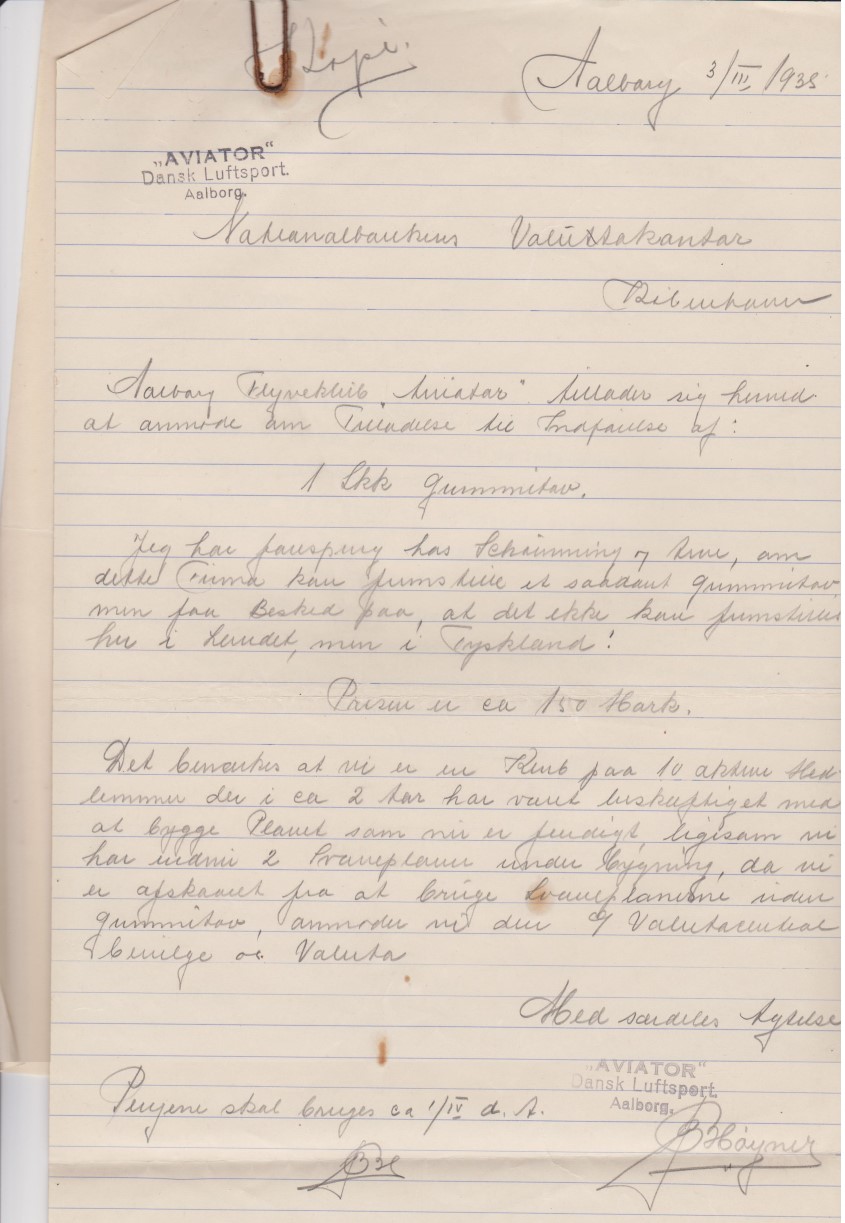 Kopi.
Aalborg 3/III 1935.
„AVIATOR“
Dansk Luftsport.
Aalborg.
Nationalbankens Valutakontor
København
Aalborg Flyveklub „Aviator“ tillader sig herved
at anmode om Tilladelse til Indførelse af:
1 Stk Gummitov.
Jeg har forespurgt hos Schiønning & Arve, om
dette Firma kan fremstille et saadant Gummitov
men faa Besked paa, at det ikke kan fremstilles
her i Landet, men i Tyskland!
Prisen er ca 150 Mark.
Det bemærkes at vi er en Klub paa 10 aktive Med-
lemmer der i ca 2 Aar har været beskæftiget med
at bygge Planet som nu er færdigt, ligesom vi
har endnu 2 Svæveplaner under Bygning, da vi
er afskaaret fra at bruge Svæveplanerne uden
Gummitov, anmoder vi den Valutacentral
bevilge os Valuta
Med særdeles Agtelse
„AVIATOR“
Dansk Luftsport.
Aalborg.
Pengene skal bruges ca 1/IV d. A.